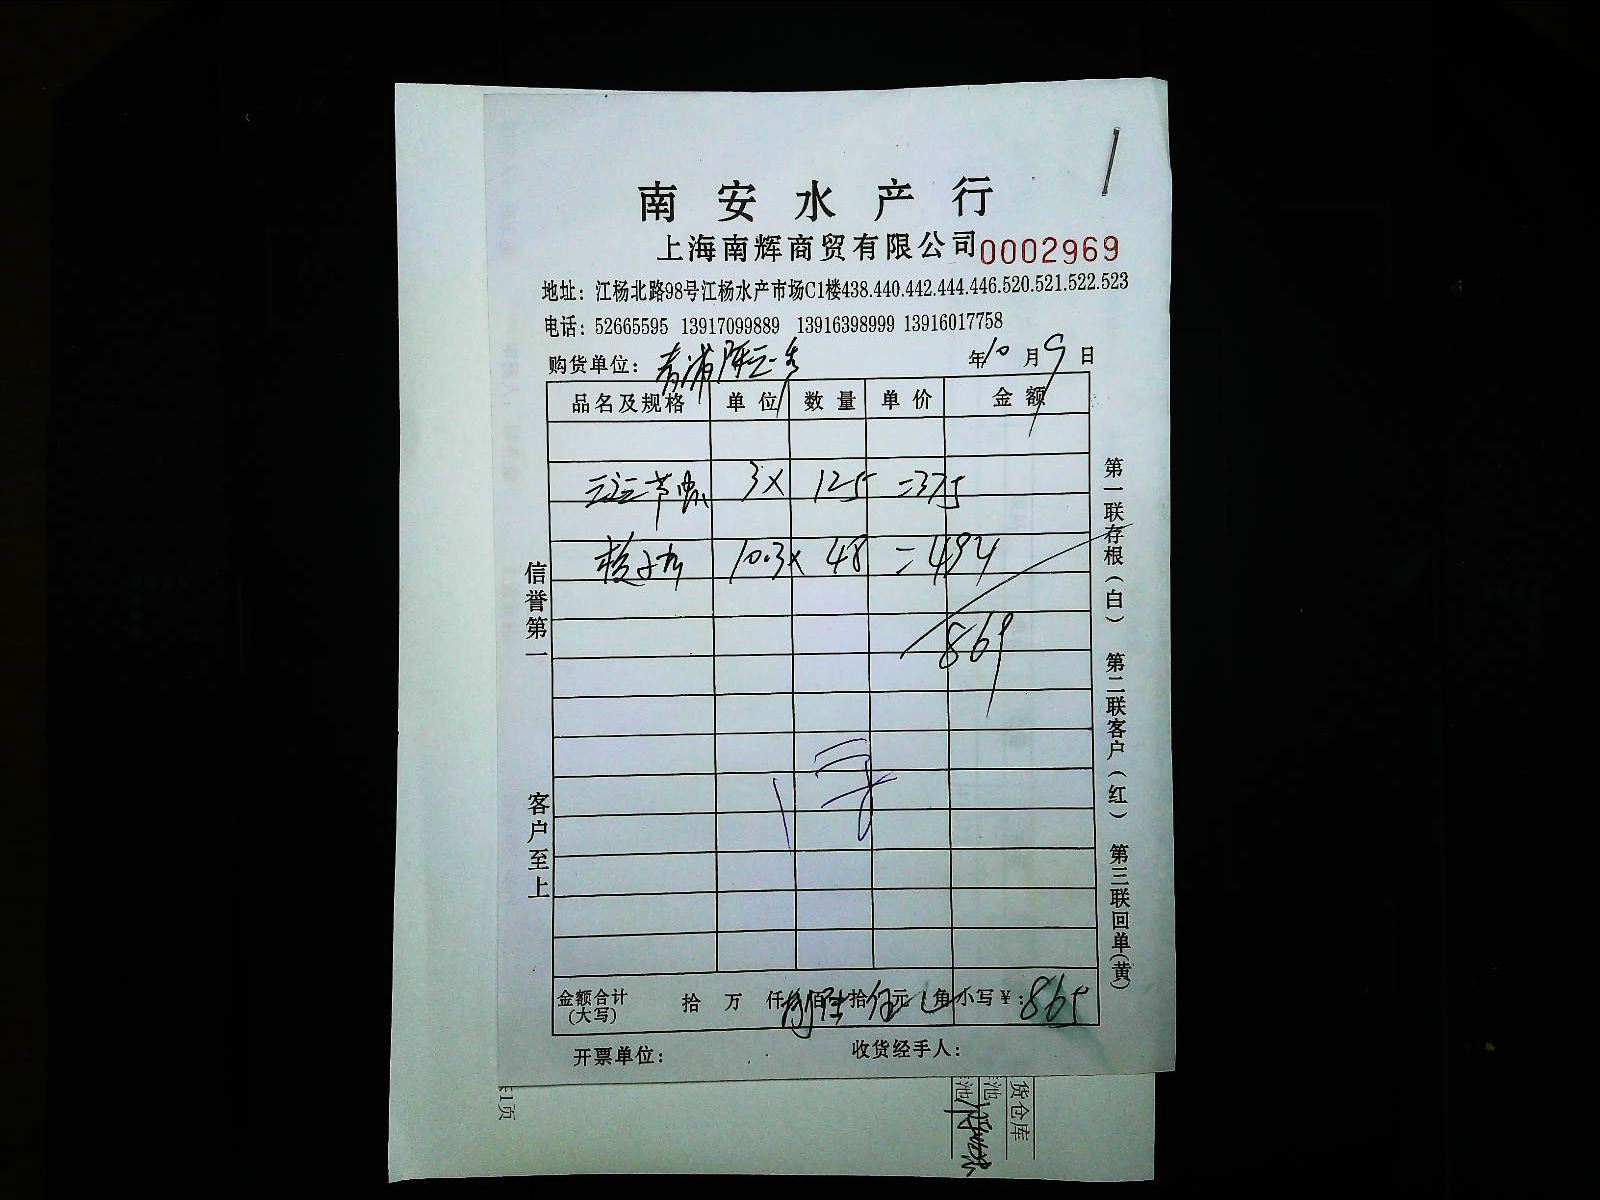 南安水产行
上海南辉商贸有限公司 0002969
地址：江杨北路98号江杨水产市场C1楼438.440.442.444.446.520.521.522.523
电话：52665595 13917099889 13916398999 13916017758
购货单位：青浦 年10月9日
品名及规格 单位 数量 单价 金额
3× 125 =375
10.3× 48 =494
869
信誉第一
客户至上
第一联存根（白） 第二联客户（红） 第三联回单（黄）
金额合计（大写） 拾 万 仟 捌佰陆拾伍元 角 小写￥：865
开票单位： 收货经手人：
1页
货仓库